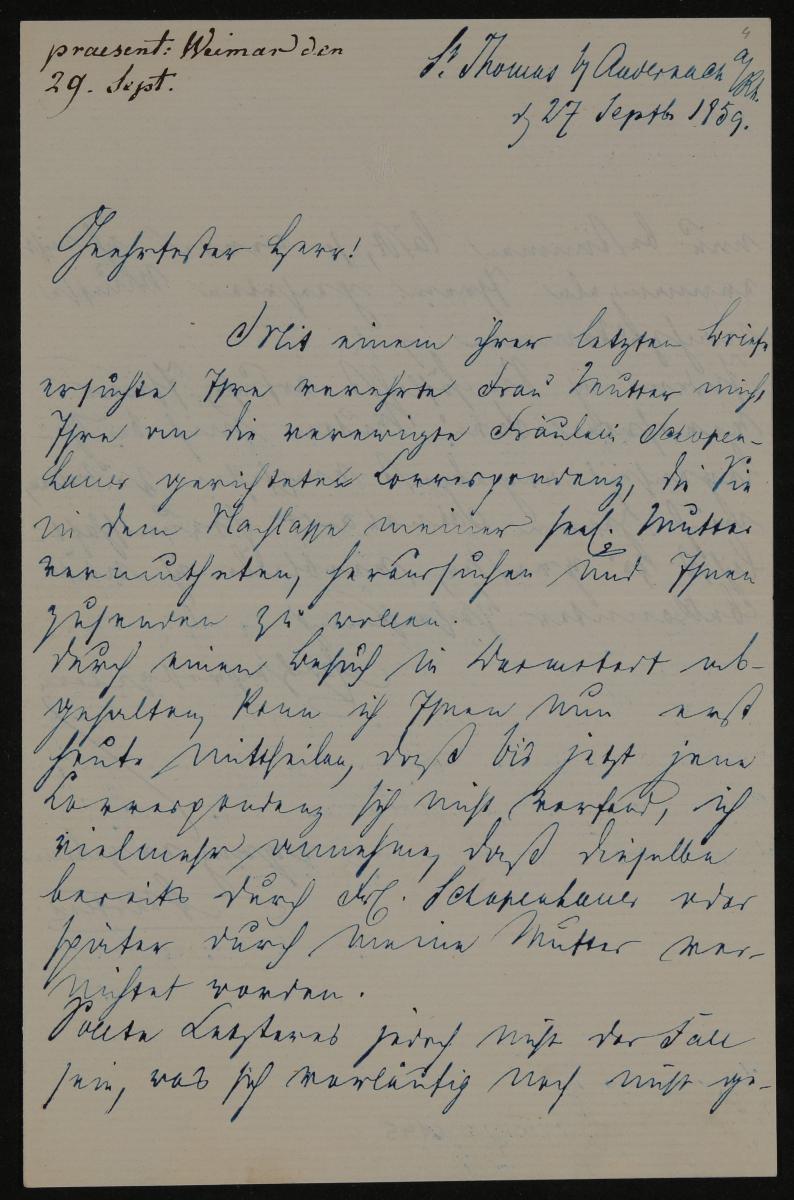 4
praesent: Weimar den
29. Sept.
St. Thomas b/ Andernach a/Rh.
d/ 27 Septb 1859.
Geehrtester Herr!
Mit einem ihrer letzten Briefe
ersuchte Ihre verehrte Frau Mutter mich,
Ihre an die verewigte Fräulein Schopen-
hauer gerichteten Correspondenz, die Sie
in dem Nachlasse meiner seel. Mutter
vermutheten, heraussuchen und Ihnen
zusenden zu wollen.
Durch einen Besuch in Darmstadt ab-
gehalten, kann ich Ihnen nun erst
heute mittheilen, daß bis jetzt jene
Correspondenz sich nicht vorfand, ich
vielmehr annehme, daß dieselbe
bereits durch Frl. Schopenhauer oder
später durch meine Mutter ver-
nichtet worden.
Sollte Letzteres jedoch nicht der Fall
sein, was sich vorläufig noch nicht ge-